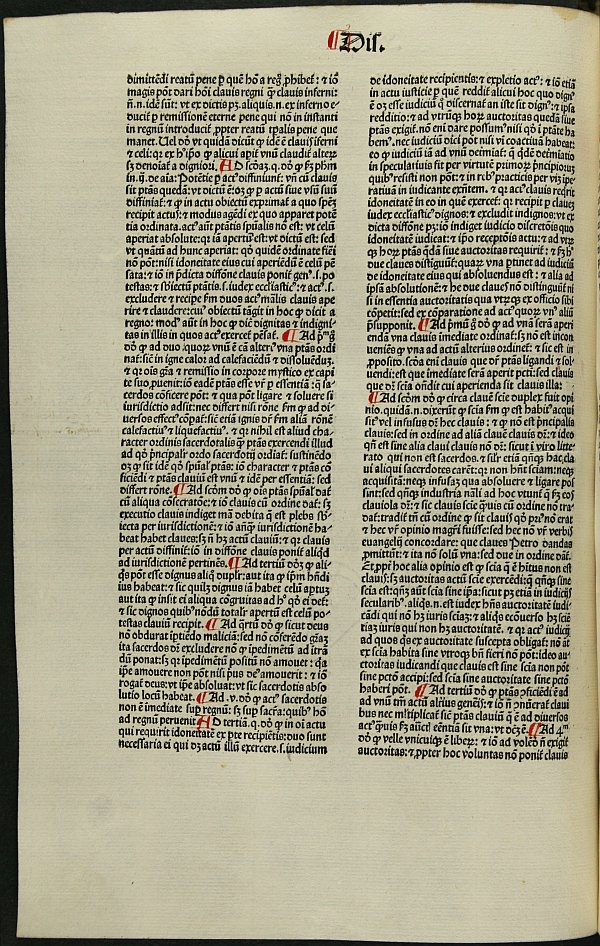 ¶ Dis.
dimittēdi reatū pene ꝑ quē hō a regͦ ꝓhibet̄: ⁊ iō
magis pōt dari hōi clauis regni qͣ clauis inferni:
n̄.n. idē sūt: vt ex dictis pꝫ. aliquis.n. ex inferno e-
ducit̄ ꝑ remissionē eterne pene qui nō in instanti
in regnū introducit̄ ꝓpter reatū tꝑalis pene que
manet. Uel dō vt quidā dicūt ꝙ idē ē clauis īferni
⁊ celi: qꝛ ex hͦ ipō ꝙ alicui apit̄ vnū claudit̄ alterꝫ
sꝫ denoīat̄ a digniori. Ad scōꝫ. q. dō ꝙ sꝫ phm̄
in .ij. de aīa: Potētie ꝑ actꝰ diffiniunt̄. vn̄ cū clauis
sit ptās quedā: vt dictū ē: oꝫ ꝙ ꝑ actū siue vsū suū
diffiniat̄: ⁊ ꝙ in actu obiectū exprimat̄ a quo spēꝫ
recipit actus: ⁊ modus agēdi ex quo apparet potē
tia ordinata. actꝰ aūt ptātis spūalis nō est: vt celū
aperiat absolute: qꝛ iā aꝑtū est: vt dictū est: sed
vt quātū ad hunc aperiat: qō quidē ordinate fieri
nō pōt: nisi idoneitate eius cui aperiēdū ē celū pē
sata: ⁊ iō in p̄dicta diffōne clauis ponit̄ genꝰ .s. po
testas: ⁊ sbiectū ptātis .s. iudex eccl̄iasticꝰ: ⁊ actꝰ .s.
excludere ⁊ recipe fm̄ duos actꝰ mālis clauis ape
rire ⁊ claudere: cuiꝰ obiectū tāgit in hoc ꝙ dicit a
regno: modꝰ aūt in hoc ꝙ dic̄ dignitas ⁊ indigni-
tas in illis in quos actꝰ exercet̄ pēsat̄. ¶ Ad pͥmū gͦ
dō ꝙ ad duo .quoꝝ vnū ē cā alteriꝰ vna ptās ordi
nat̄: sic̄ in igne calor ad calefaciēdū ⁊ dissoluēdū.
⁊ qꝛ ois gr̄a ⁊ remissio in corpore mystico ex capi
te suo ꝓuenit: iō eadē ptās esse vr̄ ꝑ essentiā: qͣ sa-
cerdos cōficere pōt: ⁊ qua pōt ligare ⁊ soluere si
iurisdictio adsit: nec differt nisi rōne fm̄ ꝙ ad di-
uersos effectꝰ cōpat̄: sic̄ etiā ignis dr̄ fm̄ aliā rōnē
calefactiuꝰ ⁊ liquefactiuꝰ. ⁊ qꝛ nihil est aliud cha-
racter ordinis sacerdotalis qͣ ptās exercendi illud
ad qō pͥncipalr̄ ordo sacerdotij ordiat̄: sustinēdo
oꝫ ꝙ sit idē qō spūal ptās: iō character ⁊ ptās cō
ficiēdi ⁊ ptās clauiū est vnū ⁊ idē per essentiā: sed
differt rōne. ¶ Ad scōm dō ꝙ ois ptās spūal dat̄
cū aliqua cōsecratōe: ⁊ iō clauis cū ordine dat̄: sꝫ
executio clauis indiget mā debita qͣ est plebs sb-
iecta per iurisdictionē: ⁊ iō anqͣ iurisdictionē ha-
beat habet claues: sꝫ nō hꝫ actū clauiū: ⁊ qꝛ clauis
per actū diffinit̄: iō in diffōne clauis ponit̄ aliqd̄
ad iurisdictionē pertinēs. ¶ Ad tertiū dōꝫ ꝙ ali-
qͥs pōt esse dignus aliqͦ duplr̄: aut ita ꝙ ipm̄ hn̄di
ius habeat: ⁊ sic quilꝫ dignus iā habet celū aptuꝫ
aut ita ꝙ insit ei aliqua cōgruitas ad hͦ qō ei det̄:
⁊ sic dignos quibꝰ nōdū totalr̄ apertū est celū po-
testas clauiū recipit. ¶ Ad qͣrtū dō ꝙ sicut deus
nō obdurat īptiēdo maliciā: sed nō cōferēdo grāꝫ
ita sacerdos dr̄ excludere nō ꝙ īpedimētū ad ītrā
dū ponat: sꝫ qꝛ īpedimētū positū nō amouet: qͣa
ipē amouere non pōt nisi pus deꝰ amouerit: ⁊ iō
rogat̄ deus: vt ipē absoluat: vt sic sacerdotis abso
lutio locū habeat. ¶ Ad .v. dō ꝙ actꝰ sacerdotis
non ē īmediate suꝑ regnū: sꝫ suꝑ sacr̄a: quibꝰ hō
ad regnū peruenit. Ad tertiā. q. dō ꝙ in oi actu
qui requirit idoneitatē ex pte recipiētis: duo sunt
necessaria ei qui dꝫ actū illū exercere. s. iudicium
de idoneitate recipientis: ⁊ expletio actꝰ: ⁊ iō etiā
in actu iusticie ꝑ quē reddit̄ alicui hoc quo dignꝰ
ē oꝫ esse iudiciū qͦ discernat̄ an iste sit dignꝰ: ⁊ ipsa
redditio: ⁊ ad vtrūqꝫ hoꝝ auctoritas quedā siue
ptās exigit̄. nō eni dare possumꝰ nisi qō ī ptāte ha
bemꝰ. nec iudiciū dici pōt nisi vi coactiuā habeat:
eo ꝙ iudiciū iā ad vnū detmīat̄: qͣ qdē detmīatio
in speculatiuis fit per virtutē primoꝝ pͥncipioꝝ
quibꝰ resisti non pōt: ⁊ in rebꝰ practicis per vim īpe
ratiuā in iudicante exn̄tem. ⁊ qꝛ actꝰ clauis reqͥrit
idoneitatē in eo in quē exercet̄: qꝛ recipit ꝑ claues
iudex eccl̄iasticꝰ dignos: ⁊ excludit indignos: vt ex
dicta diffōne pꝫ: iō indiget iudicio discretōis quo
idoneitatē iudicat: ⁊ ipō receptōis actu: ⁊ ad vtrū
qꝫ hoꝝ ptās qdā siue auctoritas requirit̄: ⁊ fꝫ hͦ
due claues distiguūt̄: quaꝝ vna ptinet ad iudiciū
de idoneitate eius qui absoluendus est: ⁊ alia ad
ipsā absolutionē: ⁊ he due claues nō distinguūt̄ ni
si in essentia auctoritatis qua vtrūqꝫ ex officio sibi
cōpetit: sed ex cōparatione ad actꝰ quoꝝ vnꝰ aliū
p̄supponit. ¶ Ad pͥmū gͦ dō ꝙ ad vnā serā aperi
endā vna clauis īmediate ordinat̄: sꝫ nō est incon
ueniēs ꝙ vna ad actū alterius ordinet̄: ⁊ sic est in
ꝓposito. scōa eni clauis que dr̄ ptās ligandi ⁊ sol-
uendi: est que īmediate serā aperit pcti: sed clauis
que dr̄ scia oñdit cui aperienda sit clauis illa:
¶ Ad scōm dō ꝙ circa clauē scie duplex fuit opi
nio. quidā.n. dixerūt ꝙ scia fm̄ ꝙ est habitꝰ acqui
sitꝰ vel infusus dr̄ hec clauis: ⁊ ꝙ nō est pͥncipalis
clauis: sed in ordine ad aliā clauē clauis dr̄: ⁊ ideo
qn̄ est sine alia claui clauis nō dr̄: sicut ī viro litte
rato qui non est sacerdos. ⁊ silr̄ etiā qn̄qꝫ hac cla
ui aliqui sacerdotes carēt: qꝛ non hn̄t sciam: neqꝫ
acquisitā: neqꝫ infusaꝫ qua absoluere ⁊ ligare pos
sint: sed qn̄qꝫ industria nāli ad hoc vtunt̄ qͣ fꝫ eos
clauiola dr̄: ⁊ sic clauis scie qͣuis cū ordine nō tra
dat̄: tradit̄ tn̄ cū ordine ꝙ sit clauis qō pͥus nō erat
⁊ hec vr̄ opinio magrī fuisse: sed hec nō vr̄ verbis
euangelij concordare: que claues Petro dandas
ꝓmittūt̄: ⁊ ita nō solū vna: sed due in ordine dāt̄.
Et ppter hoc alia opinio est ꝙ scia qͣ ē hitus non est
clauis: sꝫ auctoritas actū scie exercēdi: qͣ qn̄qꝫ sine
scia est: qn̄ꝫ aūt scia sine ipsa: sicut pꝫ etiā in iudicijs
secularibꝰ. aliqͥs.n. est iudex hn̄s auctoritatē iudi-
cādi qui nō hꝫ iuris sciaꝫ: ⁊ aliqͥs ecōuerso hꝫ sciē
tiaꝫ iuris qui non hꝫ auctoritatē. ⁊ qꝛ actꝰ iudicij
ad quos qͥs ex auctoritate suscepta obligat̄ nō aūt
ex scia habita sine vtroqꝫ bn̄ fieri nō pōt: ideo au-
ctoritas iudicandi que clauis est sine scia non pōt
sine pctō accipi: sed scia sine auctoritate sine pctō
haberi pōt. ¶ Ad tertiū dō ꝙ ptās ꝯficiēdi ē ad
ad vnū tm̄ actū alriꝰ genēs: ⁊ iō nō ꝯnūerat̄ claui
bus nec mltiplicat̄ sic̄ ptās clauiū qͣ ē ad diuersos
actꝰ qͣuis fꝫ auctēi eēntiā sit vna: vt dcm̄ ē. ¶ Ad 4ᵐ
dō ꝙ velle vnicuiqꝫ ē liberꝫ: ⁊ iō ad volēdū n̄ exigit̄
auctoritas: ⁊ ꝓpter hoc voluntas nō ponit̄ clauis